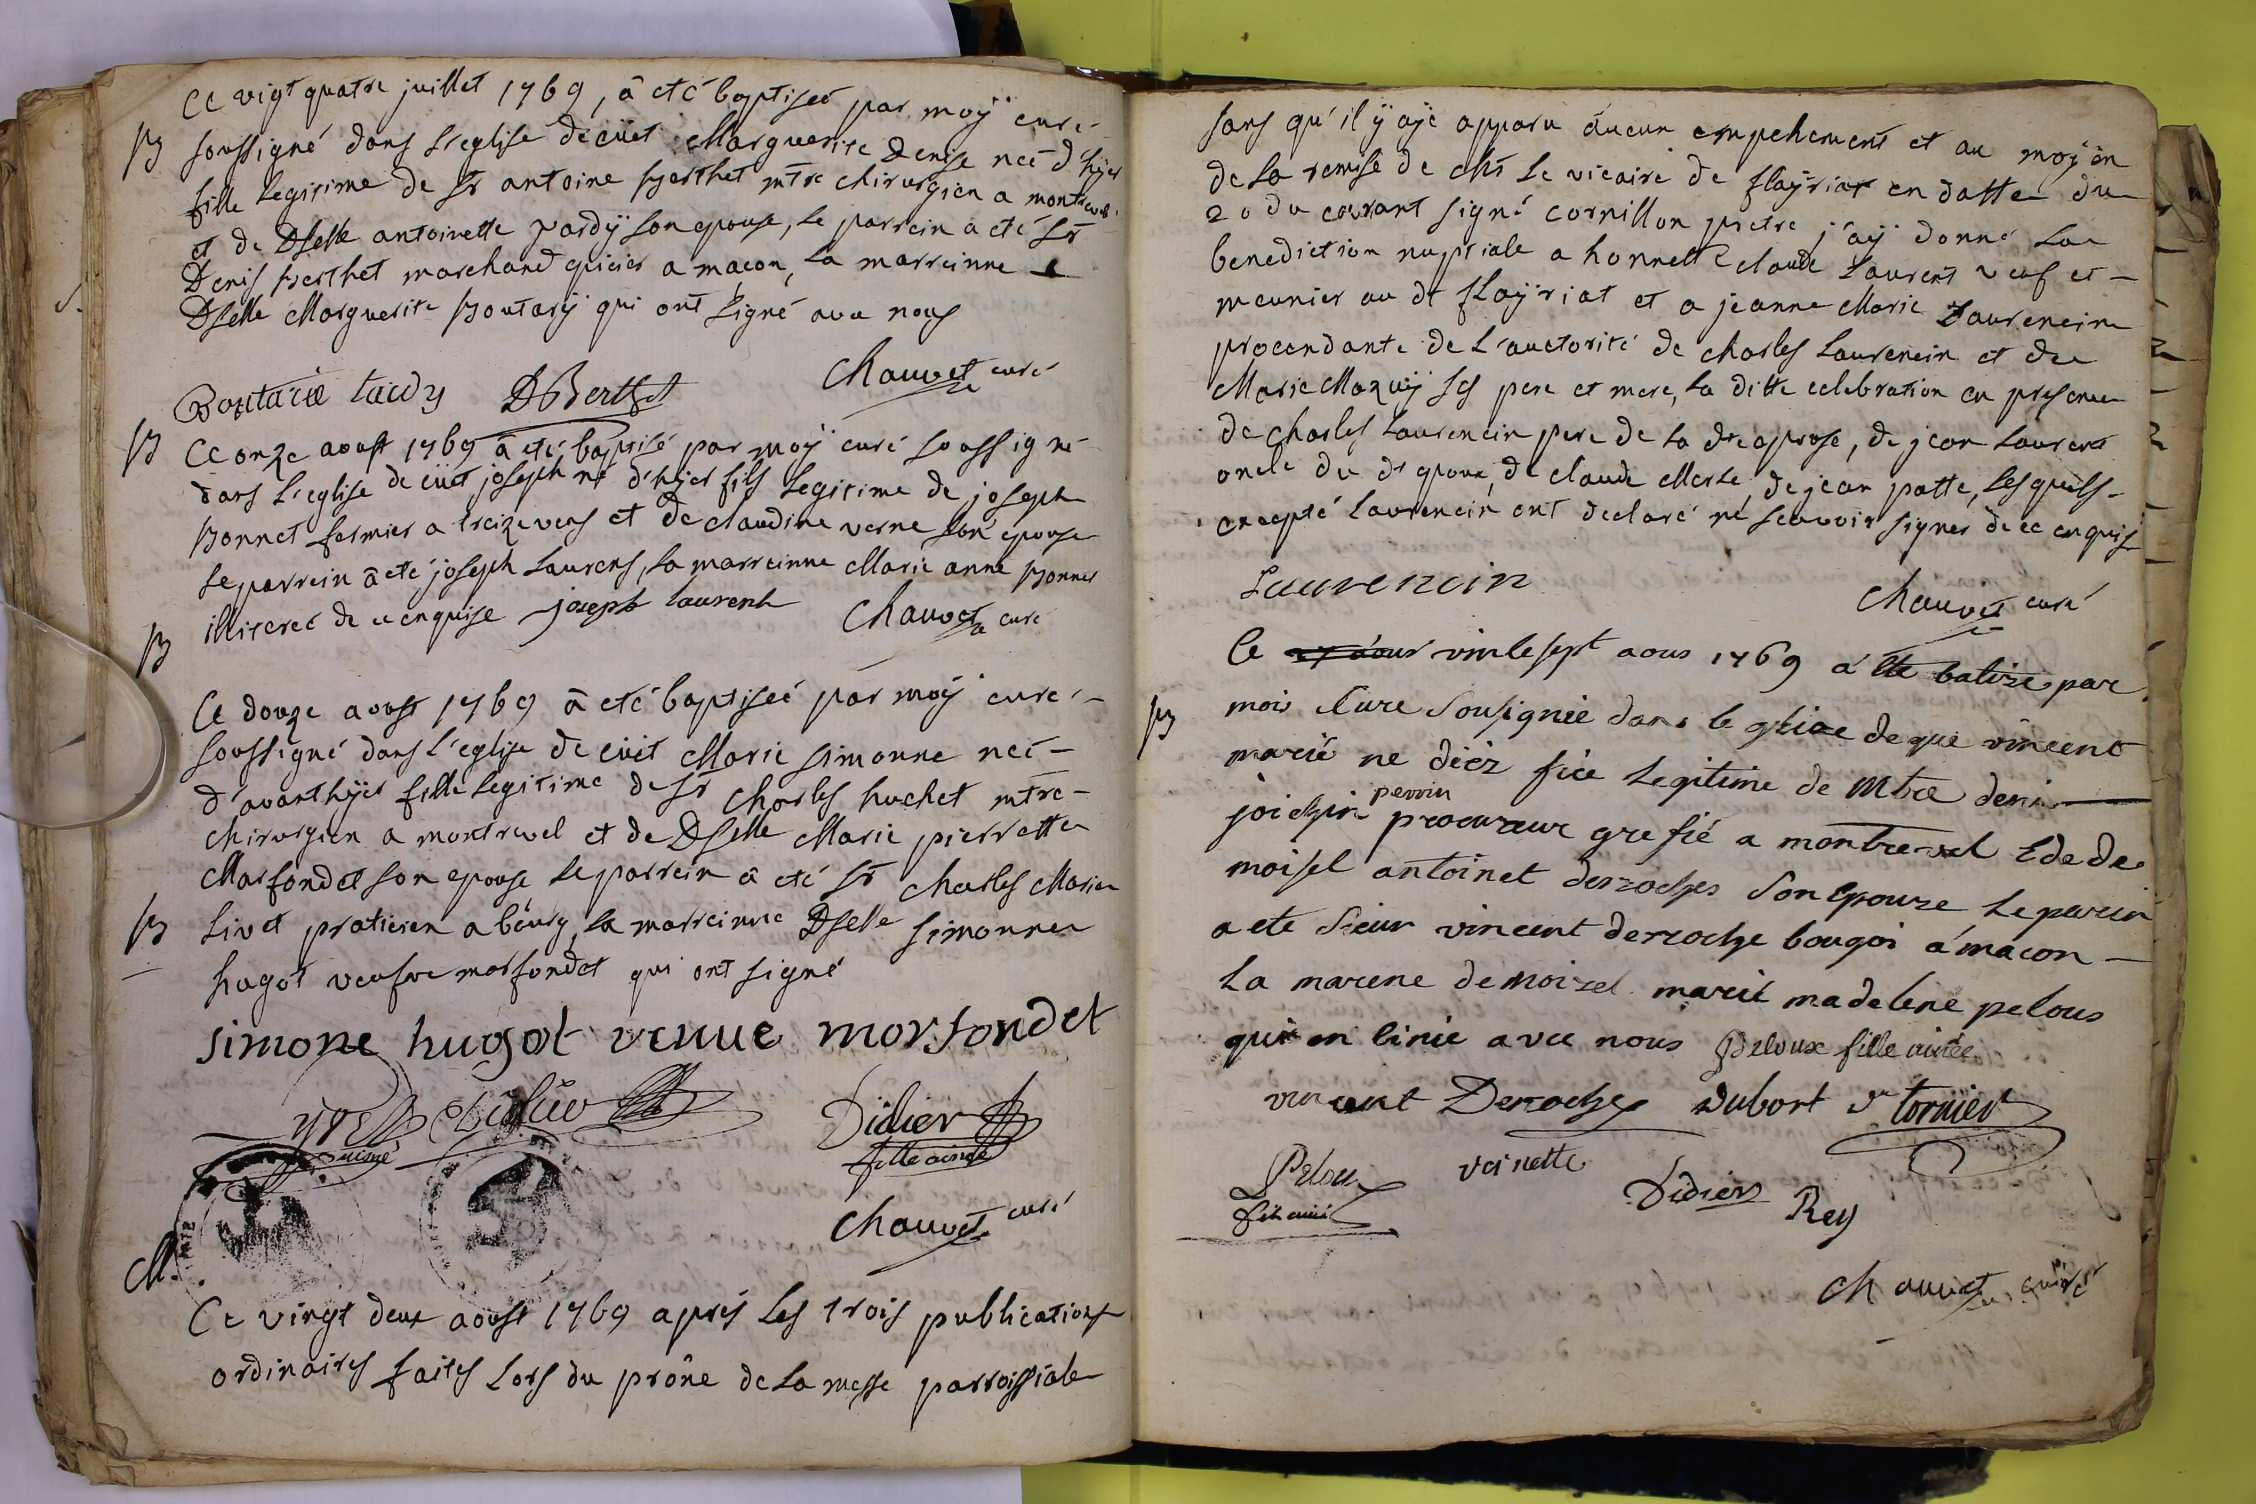 Ce vigt quatre juillet 1769, â eté baptiseé par moÿ curé
B soussigné dans l'eglise de cüet Marguerite Denise neé d'hÿer
fille legitime de Sr antoine Berthet mtre chirurgien a montrevel
et de Dselle antoinette tardÿ son epouse, le parrein a eté Sr
Denis Berthet marchand epicier a macon, la marreinne
Dselle Marguerite Boutarÿ qui ont signé avec nous
Boutarie tardy DBerthet Chauvet curé
B Ce onze aoust 1769 â eté baptisé par moÿ curé soussigné
dans l'eglise de cüet joseph né d'hÿer fils legitime de joseph
Bonnet fermier a treizevens et de claudine verne son epouse
le parrein â eté joseph Laurens, la marreinne Marie anne Bonnet
illitereé de ce enquise joseph laurent Chauvet curé
B
Ce douze aoust 1769 â eté baptiseé par moÿ curé
soussigné dans l'eglise de cüet Marie simonne neé
d'avanthÿer fille legitime de Sr Charles huchet mtre
chirurgien a montrevel et de Dselle Marie pierrette
Marfondet son epouse le parrein â eté Sr Charles Marie
B Livet praticien a bourg, la marreinne Dselle simonne
hugot veufve morfondet qui ont signé
simone hugot venue morfondet
Didier
fille ainée
Chauvet curé
M.
Ce vingt deux aoust 1769 aprés les trois publications
ordinaires faites lors du prône de la messe parroissiale
sans qu'il ÿ aÿe apparu aucun empehement et au moÿen
de la remise de Mr le vicaire de flaÿriat en datte du
20 du courant signé cornillon pretre j'aÿ donné la
benediction nuptiale a honnette claude Laurent veuf et
meunier au dt flaÿriat et a jeanne Marie Laurencin
procendante de l'auctorité de charles Laurencin et de
Marie Mazuÿ ses pere et mere, la ditte celebration en presence
de charles Laurencin pere de la dte epouse, de jean Laurent
oncle du dt epoux, de claude Merle, de jean patte, lesquels
excepté Laurencin ont declaré ne scavoir signer de ce enquis
Laurencin
Chauvet curé
Ce vintesept aous 1769 a ete batize par
B mois Cure Sousignée dans le glize de que vincent
marié ne diéz fice legitime de Mtre deni
perrin
joichin procureur grefié a montrevel E de de
moisel antoinet derroches Son Epouze le parin
a ete Sieur vincent derroche bougoi a macon
La marene demoizel marié madelene pelous
qui on cinie avec nous Peloux fille ainée
vincent Deroches Dubort Dr tornier
Peloux
fill ainé
voinette
Didier Rey
Chauvet curé